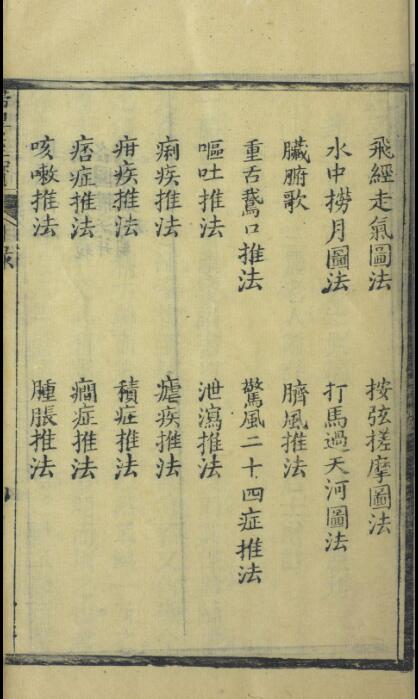 飛經走氣圖法　按弦搓摩圖法
水中撈月圖法　打馬過天河圖法
臟腑歌　臍風推法
重舌鵞口推法　驚風二十四症推法
嘔吐推法　泄瀉推法
痢疾推法　瘧疾推法
疳疾推法　積症推法
痞症推法　癇症推法
咳嗽推法　腫脹推法